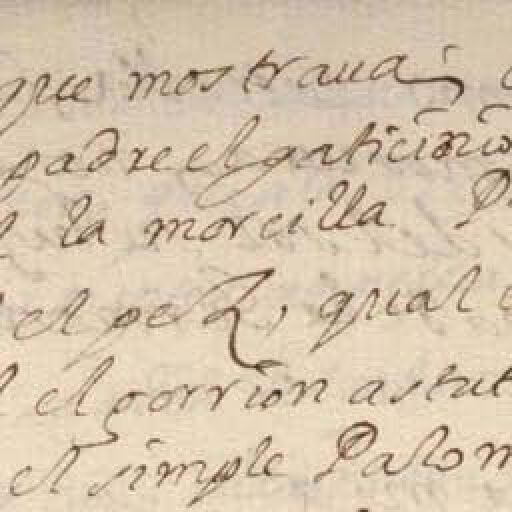 que mostraua;
padre el gaticinio
la morcilla
el pez, qual
el gorrion astut
el simple Palom